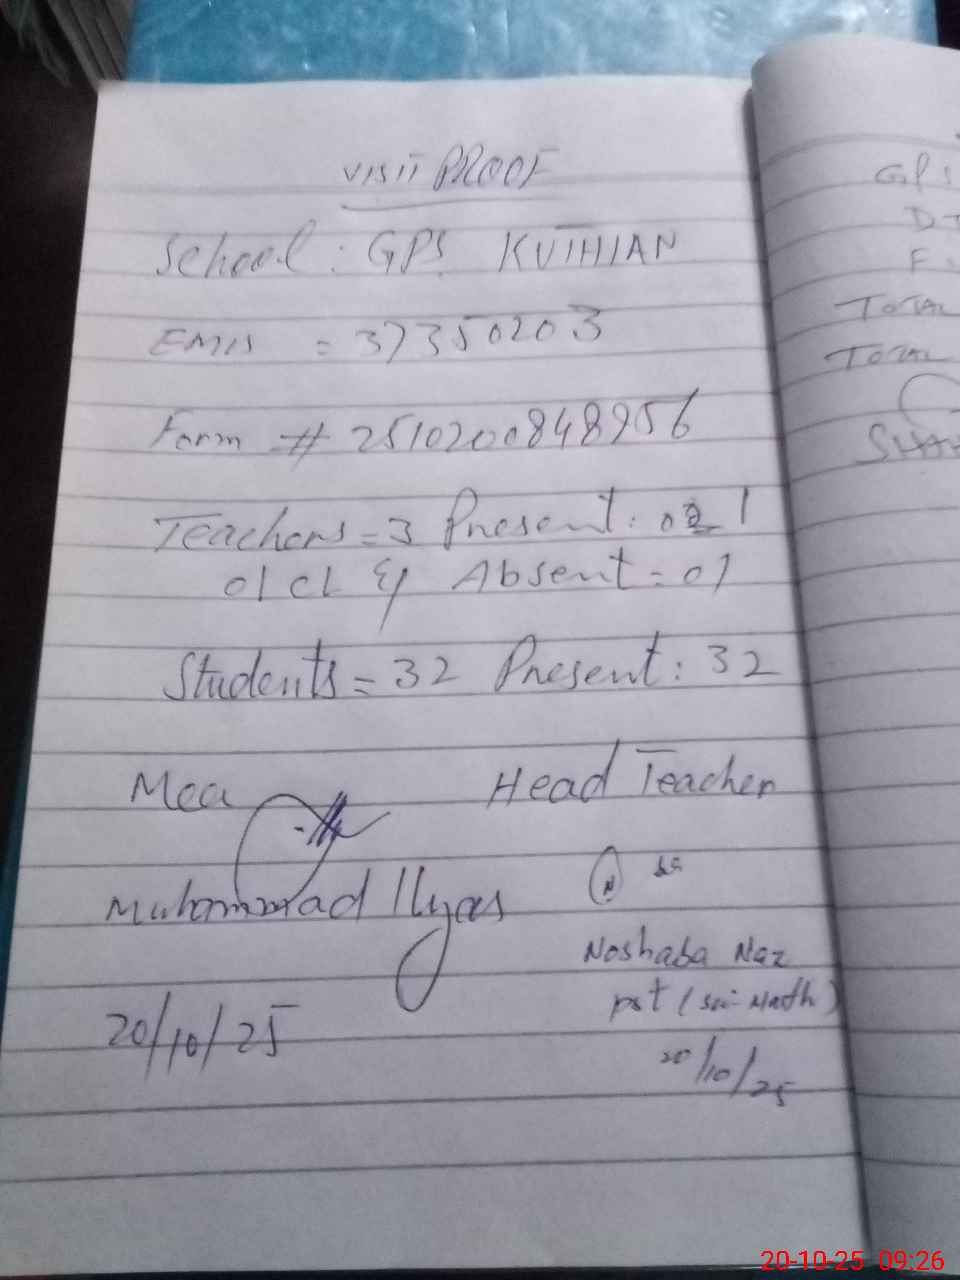 VISIT PROOF
School: GPS KUTHIAN
EMIS = 37350203
Form # 2510200848956
Teachers = 3 Present: 01
01 CL & Absent = 01
Students = 32 Present: 32
Mea Head Teacher
Muhammad Ilyas
Noshaba Naz
pst (sci-Math)
20/10/25
20/10/25
GPS
F
TOTAL
TOTAL
20-10-25 09:26